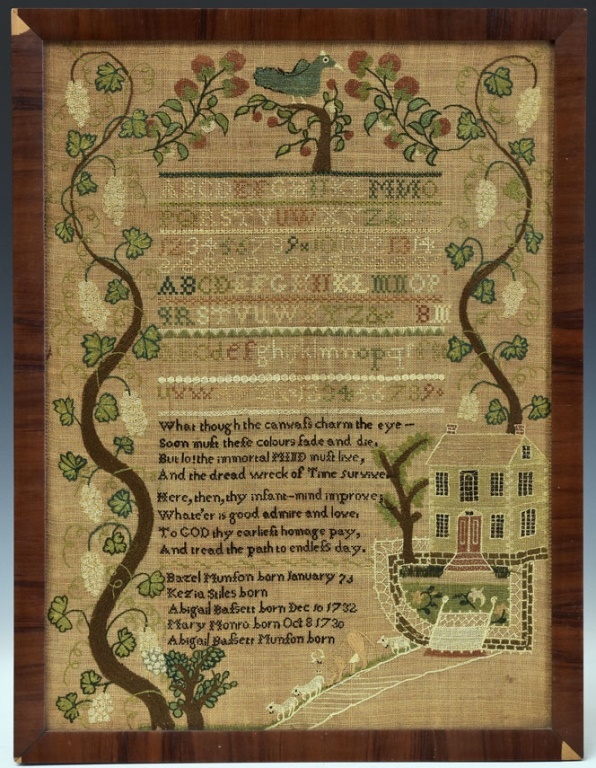 ABCDEFGHIJKLMNO
PQRSTVUWXYZ&
1234567891011121314
ABCDEFGHIJKLMNOP
QRSTVUWXYZ&
cdefghijklmnopqr
What though the canvaſs charm the eye—
Soon muſt theſe colours fade and die,
But lo! the immortal MIND muſt live,
And the dread wreck of Time survive.
Here, then, thy infant-mind improve;
Whate'er is good admire and love:
To GOD thy earlieſt homage pay,
And tread the path to endleſs day.
Bazel Munſon born January 73
Kezia Stiles born
Abigail Baſsett born Dec 10 1732
Mary Monro born Oct 8 1730
Abigail Baſsett Munſon born